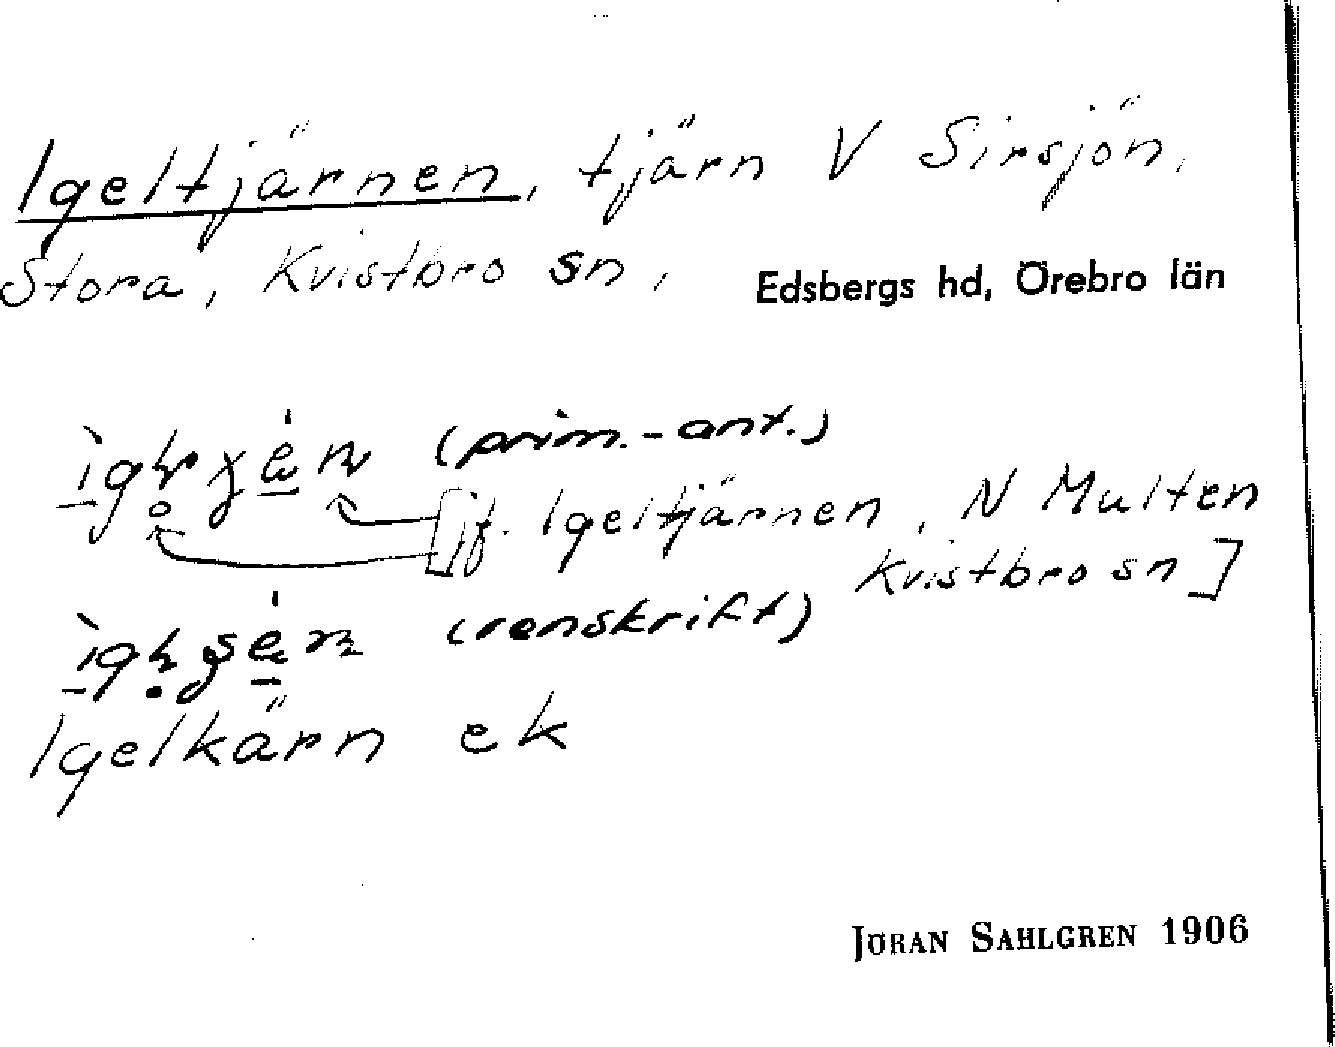 Igeltjärnen, tjärn V Sirsjön,
Stora, Kvistbro sn, Edsbergs hd, Örebro län
(prim.-ant.)
[Jf. Igeltjärnen, N Multen
Kvistbro sn]
(renskrift)
Igelkärn ek
JÖRAN SAHLGREN 1906